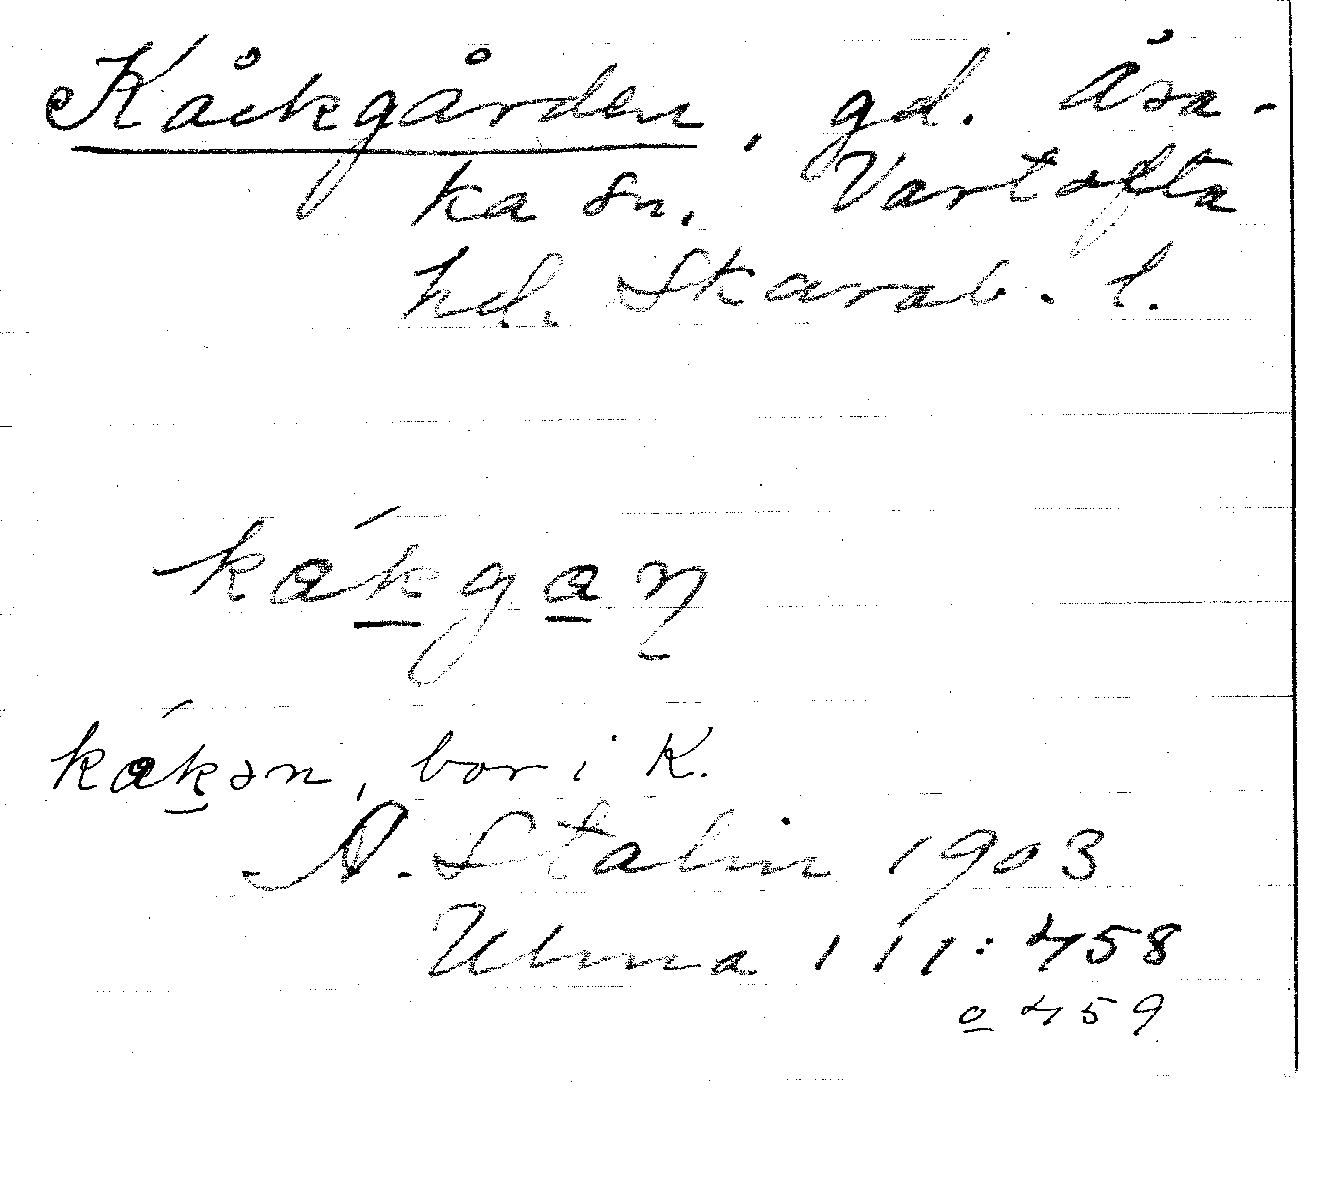 Kåckgården, gd. Åsa-
ka sn. Vartofta
hd. Skarab. l.
kákgaɳ
kákən, bor i K.
A. Stalin 1903
Ulma 111:458
o 459